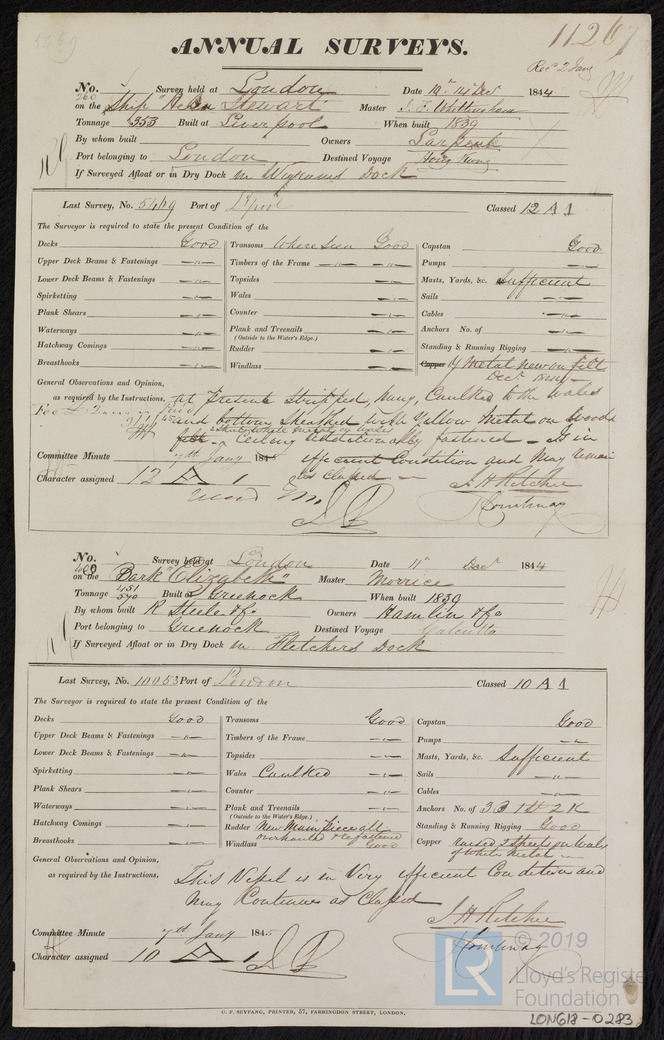 5469
ANNUAL SURVEYS.
11267
Rec. 2 Jany
No. 260 Survey held at London Date 10th 14 Decr 1844
on the Ship "Helen Stewart" Master J. F. Whittingham
Tonnage 353 Built at Liverpool When built 1839
By whom built Owners Larpent
Port belonging to London Destined Voyage Hong Kong
If Surveyed Afloat or in Dry Dock in Wigrams Dock
Last Survey, No. 5469 Port of L'pool Classed 12 A 1
The Surveyor is required to state the present Condition of the
Decks Good Transoms Where Seen Good Capstan Good
Upper Deck Beams & Fastenings " Timbers of the Frame " " Pumps "
Lower Deck Beams & Fastenings " Topsides " Masts, Yards, &c. Sufficient
Spirketting " Wales " Sails "
Plank Shears " Counter " Cables "
Waterways " Plank and Treenails " Anchors No. of "
(Outside to the Water's Edge.)
Hatchway Comings " Rudder " Standing & Running Rigging "
Breasthooks " Windlass " Copper Y Metal new on felt
Decr 1844
General Observations and Opinion,
as required by the Instructions, at present stripped, Caulked to the wales
and bottom Sheathed with Yellow Metal on
felt ceiling additionally fastened - is in
Committee Minute 7th Jany 1845 efficient Condition and May remain
Character assigned 12 A 1 as Classed.
J. H. Ritchie
No. 400 Survey held at London Date 11th Decr 1844
on the Bark "Elizabeth" Master Morrice
Tonnage 451 540 Built at Greenock When built 1839
By whom built R Steele & Co Owners Hamlin & Co
Port belonging to Greenock Destined Voyage Calcutta
If Surveyed Afloat or in Dry Dock in Fletchers Dock
Last Survey, No. 10053 Port of London Classed 10 A 1
The Surveyor is required to state the present Condition of the
Decks Good Transoms Good Capstan Good
Upper Deck Beams & Fastenings " Timbers of the Frame " Pumps "
Lower Deck Beams & Fastenings " Topsides " Masts, Yards, &c. Sufficient
Spirketting " Wales Caulked " Sails "
Plank Shears " Counter " Cables "
Waterways " Plank and Treenails " Anchors No. of 3 B 1 St 2 K
(Outside to the Water's Edge.)
Hatchway Comings " Rudder New Main Piece all Standing & Running Rigging Good
overhauled & refastened
Breasthooks " Windlass Good Copper raised 2 Sheets on Wales
of White Metal
General Observations and Opinion,
as required by the Instructions, This Vessel is in Very efficient Condition and
May Continue as Classed
J. H. Ritchie
Committee Minute 7th Jany 1845
Character assigned 10 A 1
C. F. SEYFANG, PRINTER, 57, FARRINGDON STREET, LONDON.
LR © 2019
Lloyd's Register
Foundation
LON618-0283